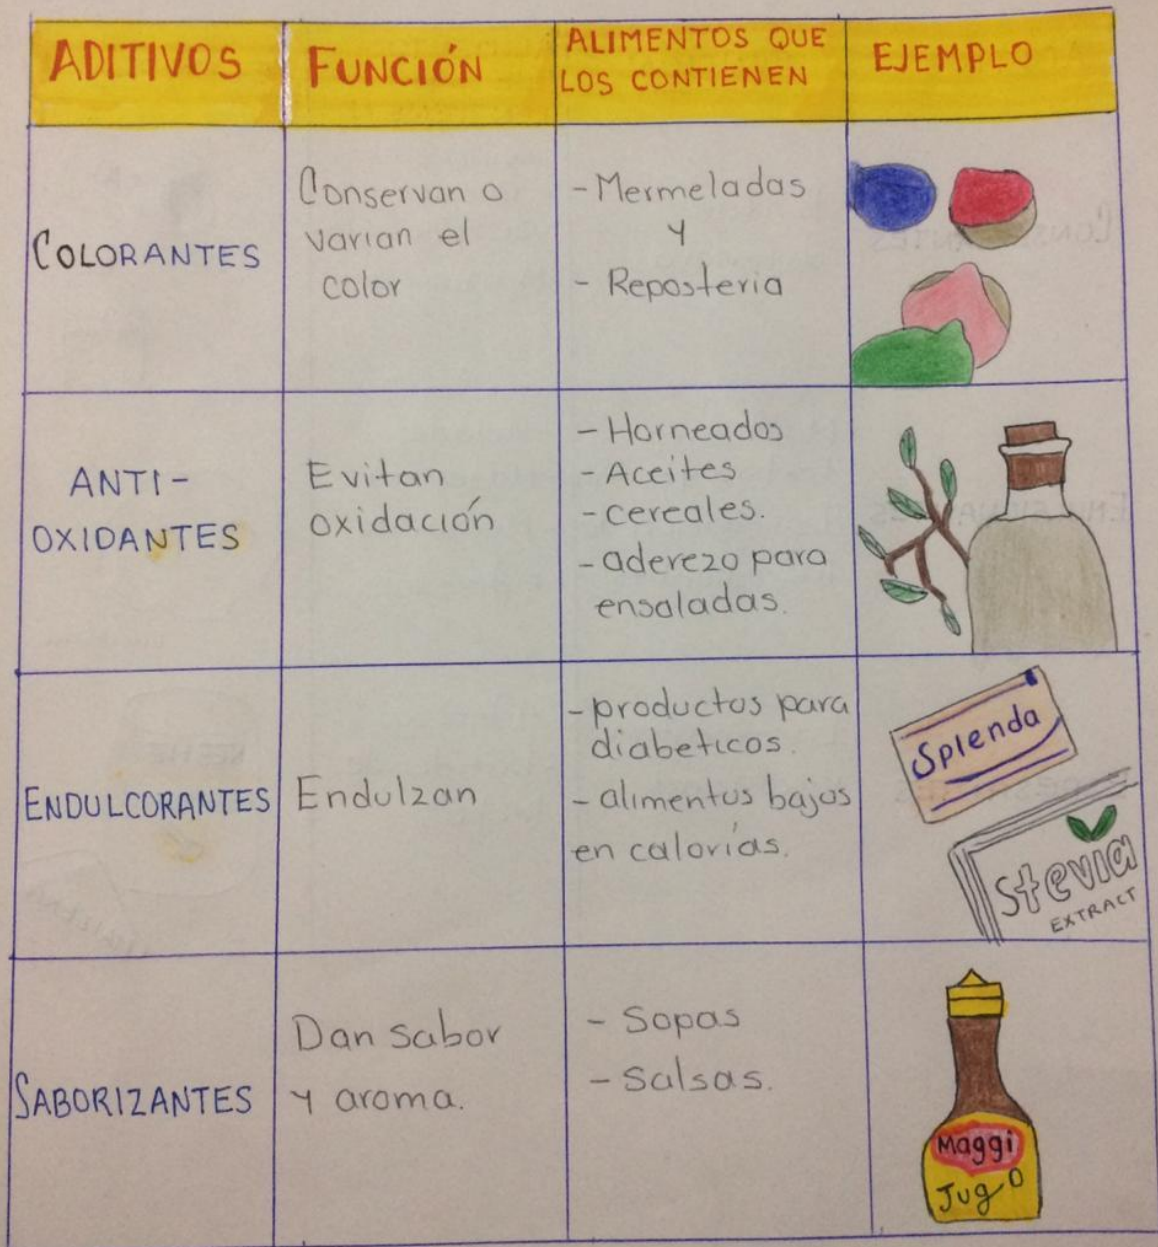 ADITIVOS
FUNCIÓN
ALIMENTOS QUE
LOS CONTIENEN
EJEMPLO
COLORANTES
Conservan o
varian el
color
- Mermeladas
y
- Reposteria
ANTI-
OXIDANTES
Evitan
oxidación
- Horneados
- Aceites
- cereales.
- aderezo para
ensaladas.
ENDULCORANTES
Endulzan
- productos para
diabeticos.
- alimentos bajos
en calorías.
Splenda
Stevia
EXTRACT
SABORIZANTES
Dan sabor
y aroma.
- Sopas
- Salsas.
Maggi
Jugo